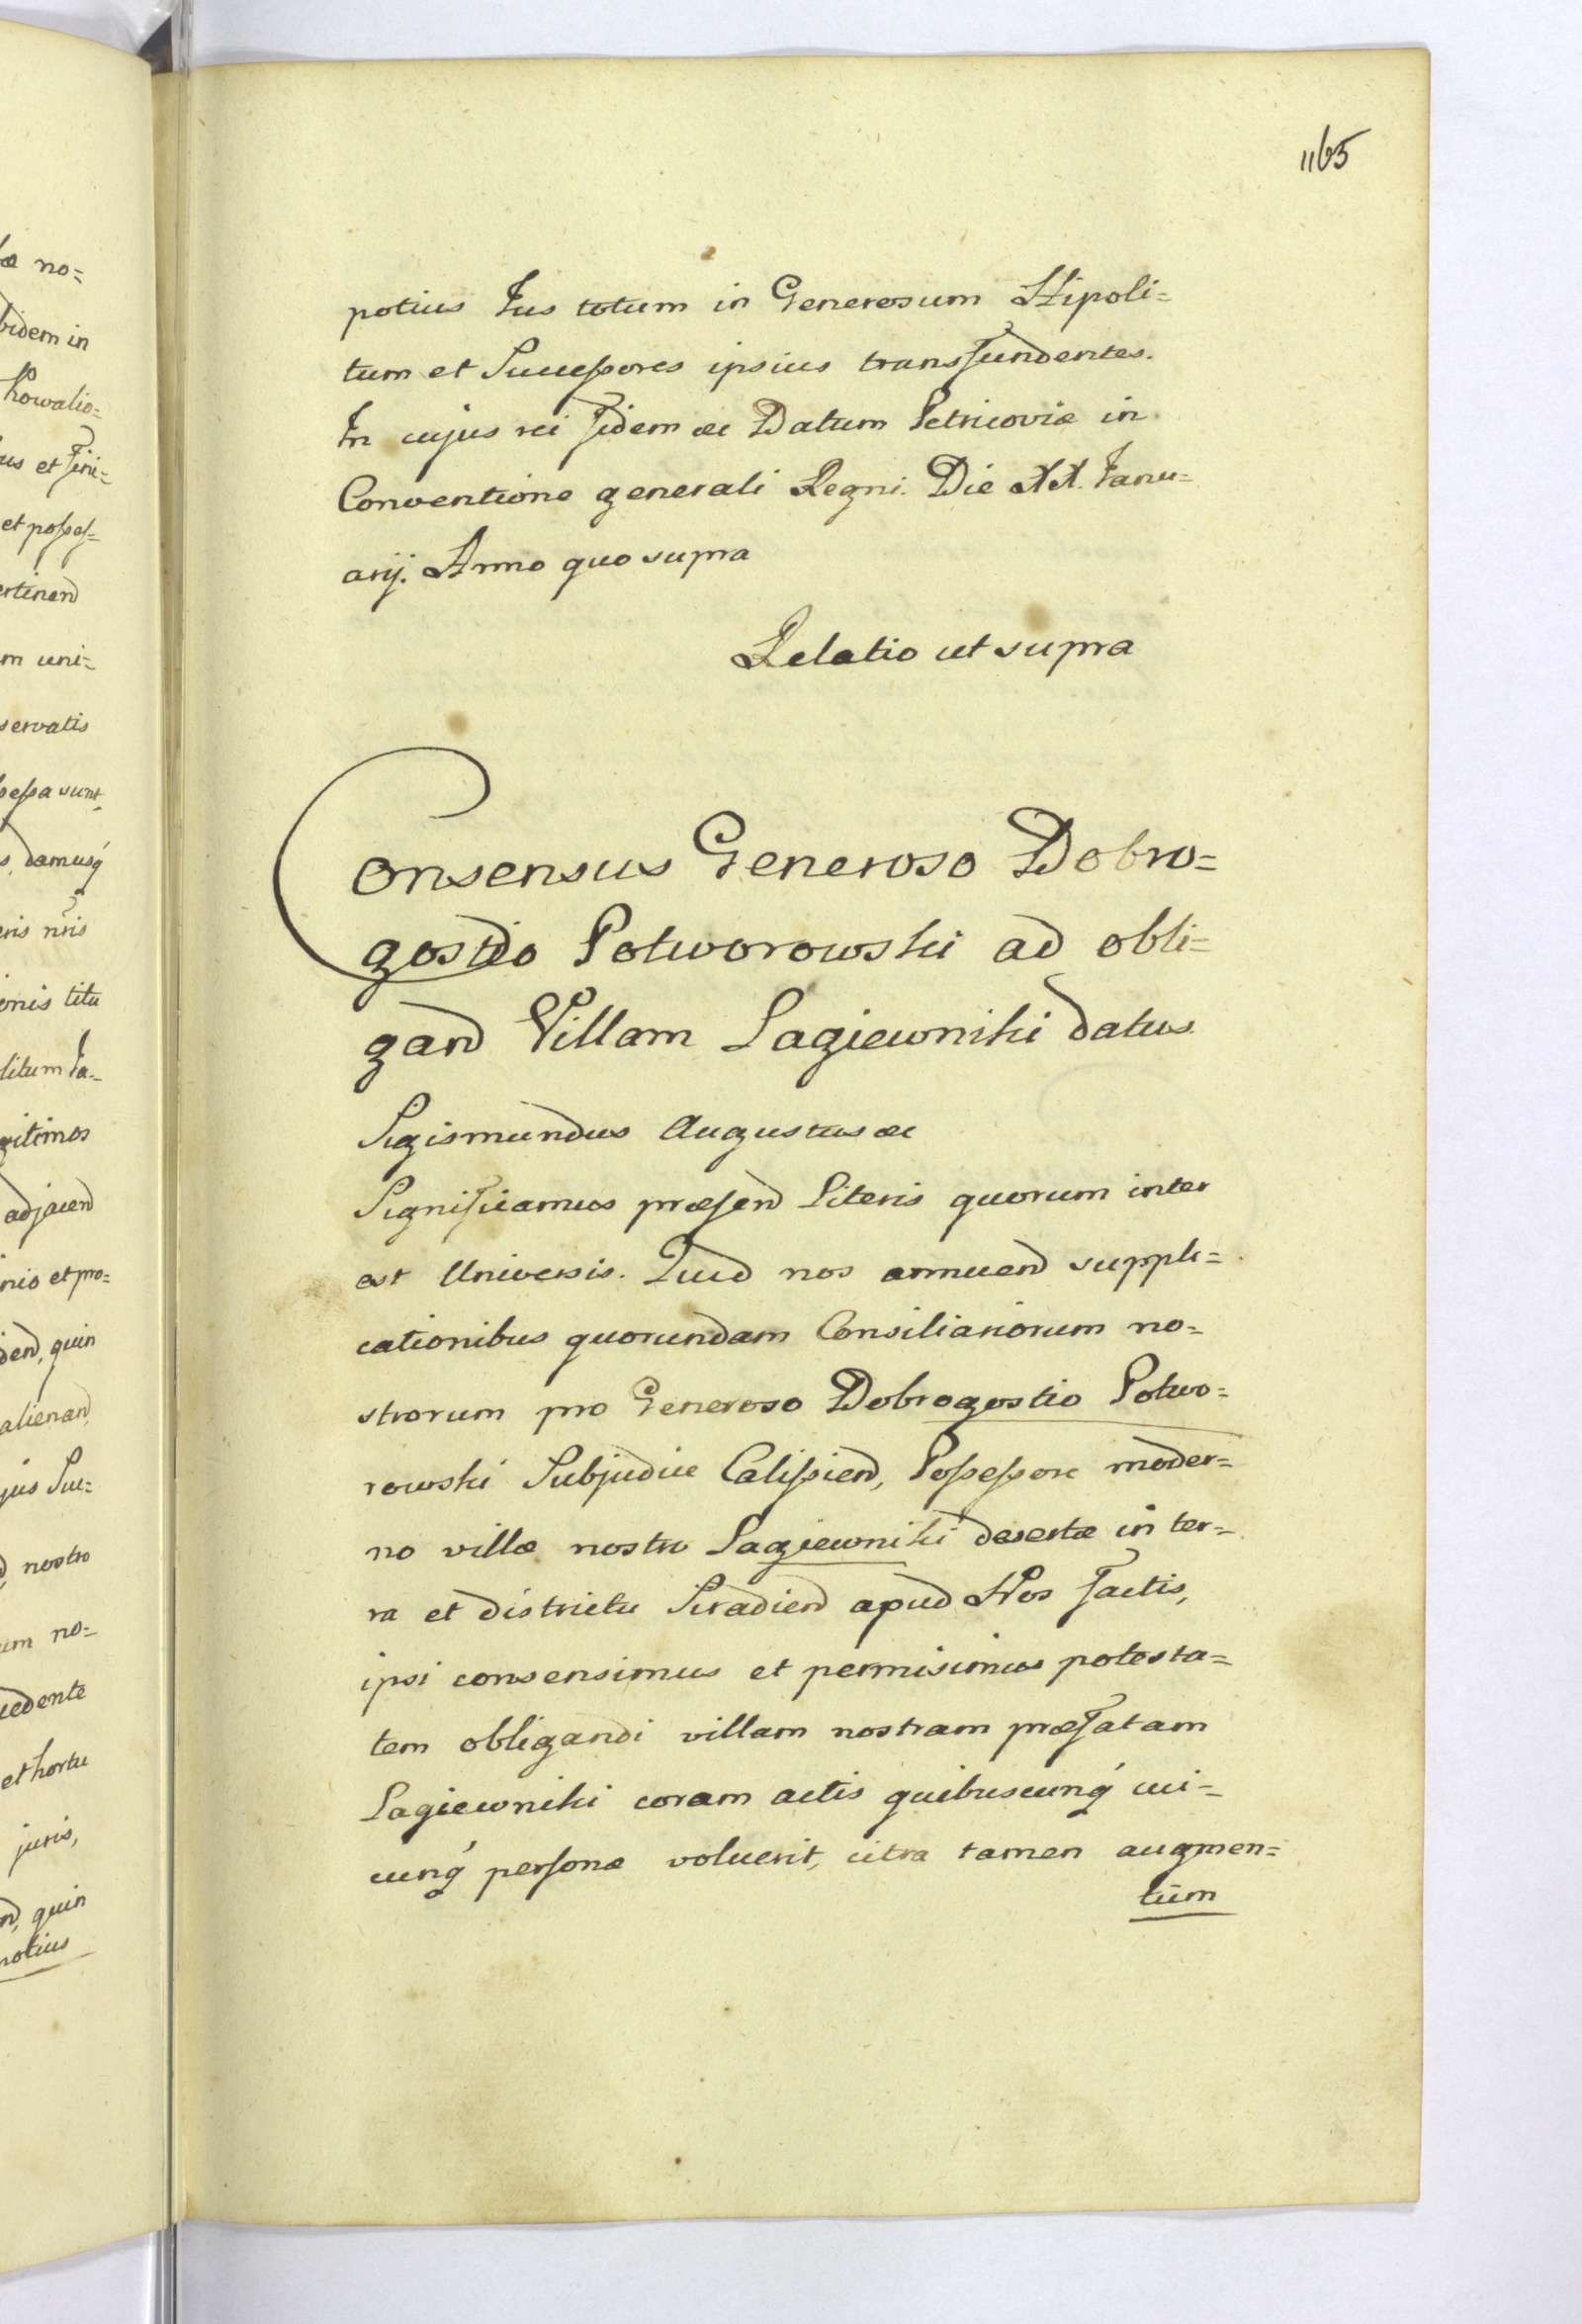 1165
potius Jus totum in Generosum Hipoli=
tum et Successores ipsius transfundentes.
In cujus rei fidem &c Datum Petricoviæ in
Conventione generali Regni. Die XX. Janu=
arij. Anno quo supra
Relatio ut supra
Consensus Generoso Dobro=
gostio Potworowski ad obli=
gand Villam Lagiewniki datus
Sigismundus Augustus &c
Significamus præsend Literis quorum inter
est Universis. Quod nos annuend suppli=
cationibus quorundam Consiliariorum no=
strorum pro Generoso Dobrogostio Potwo=
rowski Subjudice Calissiend, Possessore moder=
no villæ nostræ Lagiewniki desertæ in ter=
ra et districtu Siradiend apud Nos factis,
ipsi consensimus et permisimus potesta=
tem obligandi villam nostram præfatam
Lagiewniki coram actis quibuscunq́ cui=
cunq́ personæ voluerit, citra tamen augmen=
tum
æ no=
bidem in
Kowalio=
us et fini=
et posses=
ertinend
m uni=
servatis
sessa sunt,
s, damusq́
eris nris
ionis titu
litum Ja=
gitimos
adjacend
nio et pro=
dend, quin
alienand
jus Suc=
d, nostro
um no=
cedente
et hortu
juris,
nd, quin
potius